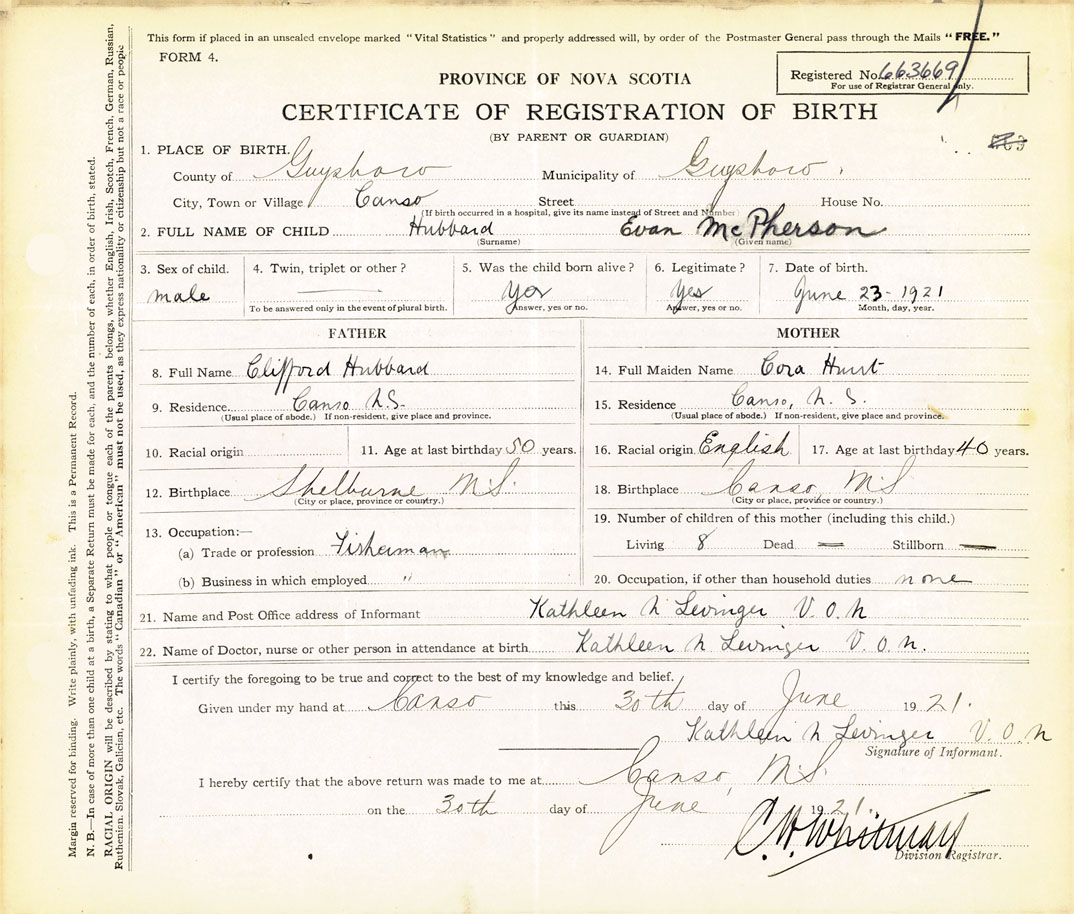 This form if placed in an unsealed envelope marked "Vital Statistics" and properly addressed will, by order of the Postmaster General pass through the Mails "FREE."
FORM 4.
Registered No. 663669
For use of Registrar General only.
PROVINCE OF NOVA SCOTIA
CERTIFICATE OF REGISTRATION OF BIRTH
(BY PARENT OR GUARDIAN)
1. PLACE OF BIRTH.
County of Guysboro Municipality of Guysboro
City, Town or Village Canso Street House No.
(If birth occurred in a hospital, give its name instead of Street and Number)
2. FULL NAME OF CHILD Hubbard Evan McPherson
(Surname) (Given name)
3. Sex of child. 4. Twin, triplet or other? 5. Was the child born alive? 6. Legitimate? 7. Date of birth.
male Yes Yes June 23 - 1921
To be answered only in the event of plural birth. Answer, yes or no. Answer, yes or no. Month, day, year.
FATHER
8. Full Name Clifford Hubbard
9. Residence Canso N.S.
(Usual place of abode.) If non-resident, give place and province.
10. Racial origin 11. Age at last birthday 50 years.
12. Birthplace Shelburne N.S.
(City or place, province or country.)
13. Occupation:—
(a) Trade or profession Fisherman
(b) Business in which employed "
MOTHER
14. Full Maiden Name Cora Hurst
15. Residence Canso, N.S.
(Usual place of abode.) If non-resident, give place and province.
16. Racial origin English 17. Age at last birthday 40 years.
18. Birthplace Canso NS
(City or place, province or country.)
19. Number of children of this mother (including this child.)
Living 8 Dead — Stillborn —
20. Occupation, if other than household duties none
21. Name and Post Office address of Informant Kathleen N Levinger V.O.N
22. Name of Doctor, nurse or other person in attendance at birth Kathleen N Levinger V.O.N.
I certify the foregoing to be true and correct to the best of my knowledge and belief.
Given under my hand at Canso this 30th day of June 1921.
Kathleen N Levinger V.O.N
Signature of Informant.
I hereby certify that the above return was made to me at Canso, N.S.
on the 30th day of June 1921.
C.H. Whitman
Division Registrar.
Margin reserved for binding. Write plainly, with unfading ink. This is a Permanent Record.
N. B.—In case of more than one child at a birth, a Separate Return must be made for each, and the number of each, in order of birth, stated.
RACIAL ORIGIN will be described by stating to what people or tongue each of the parents belongs, whether English, Irish, Scotch, French, German, Russian,
Ruthenian, Slovak, Galician, etc. The words "Canadian" or "American" must not be used, as they express nationality or citizenship but not a race or people